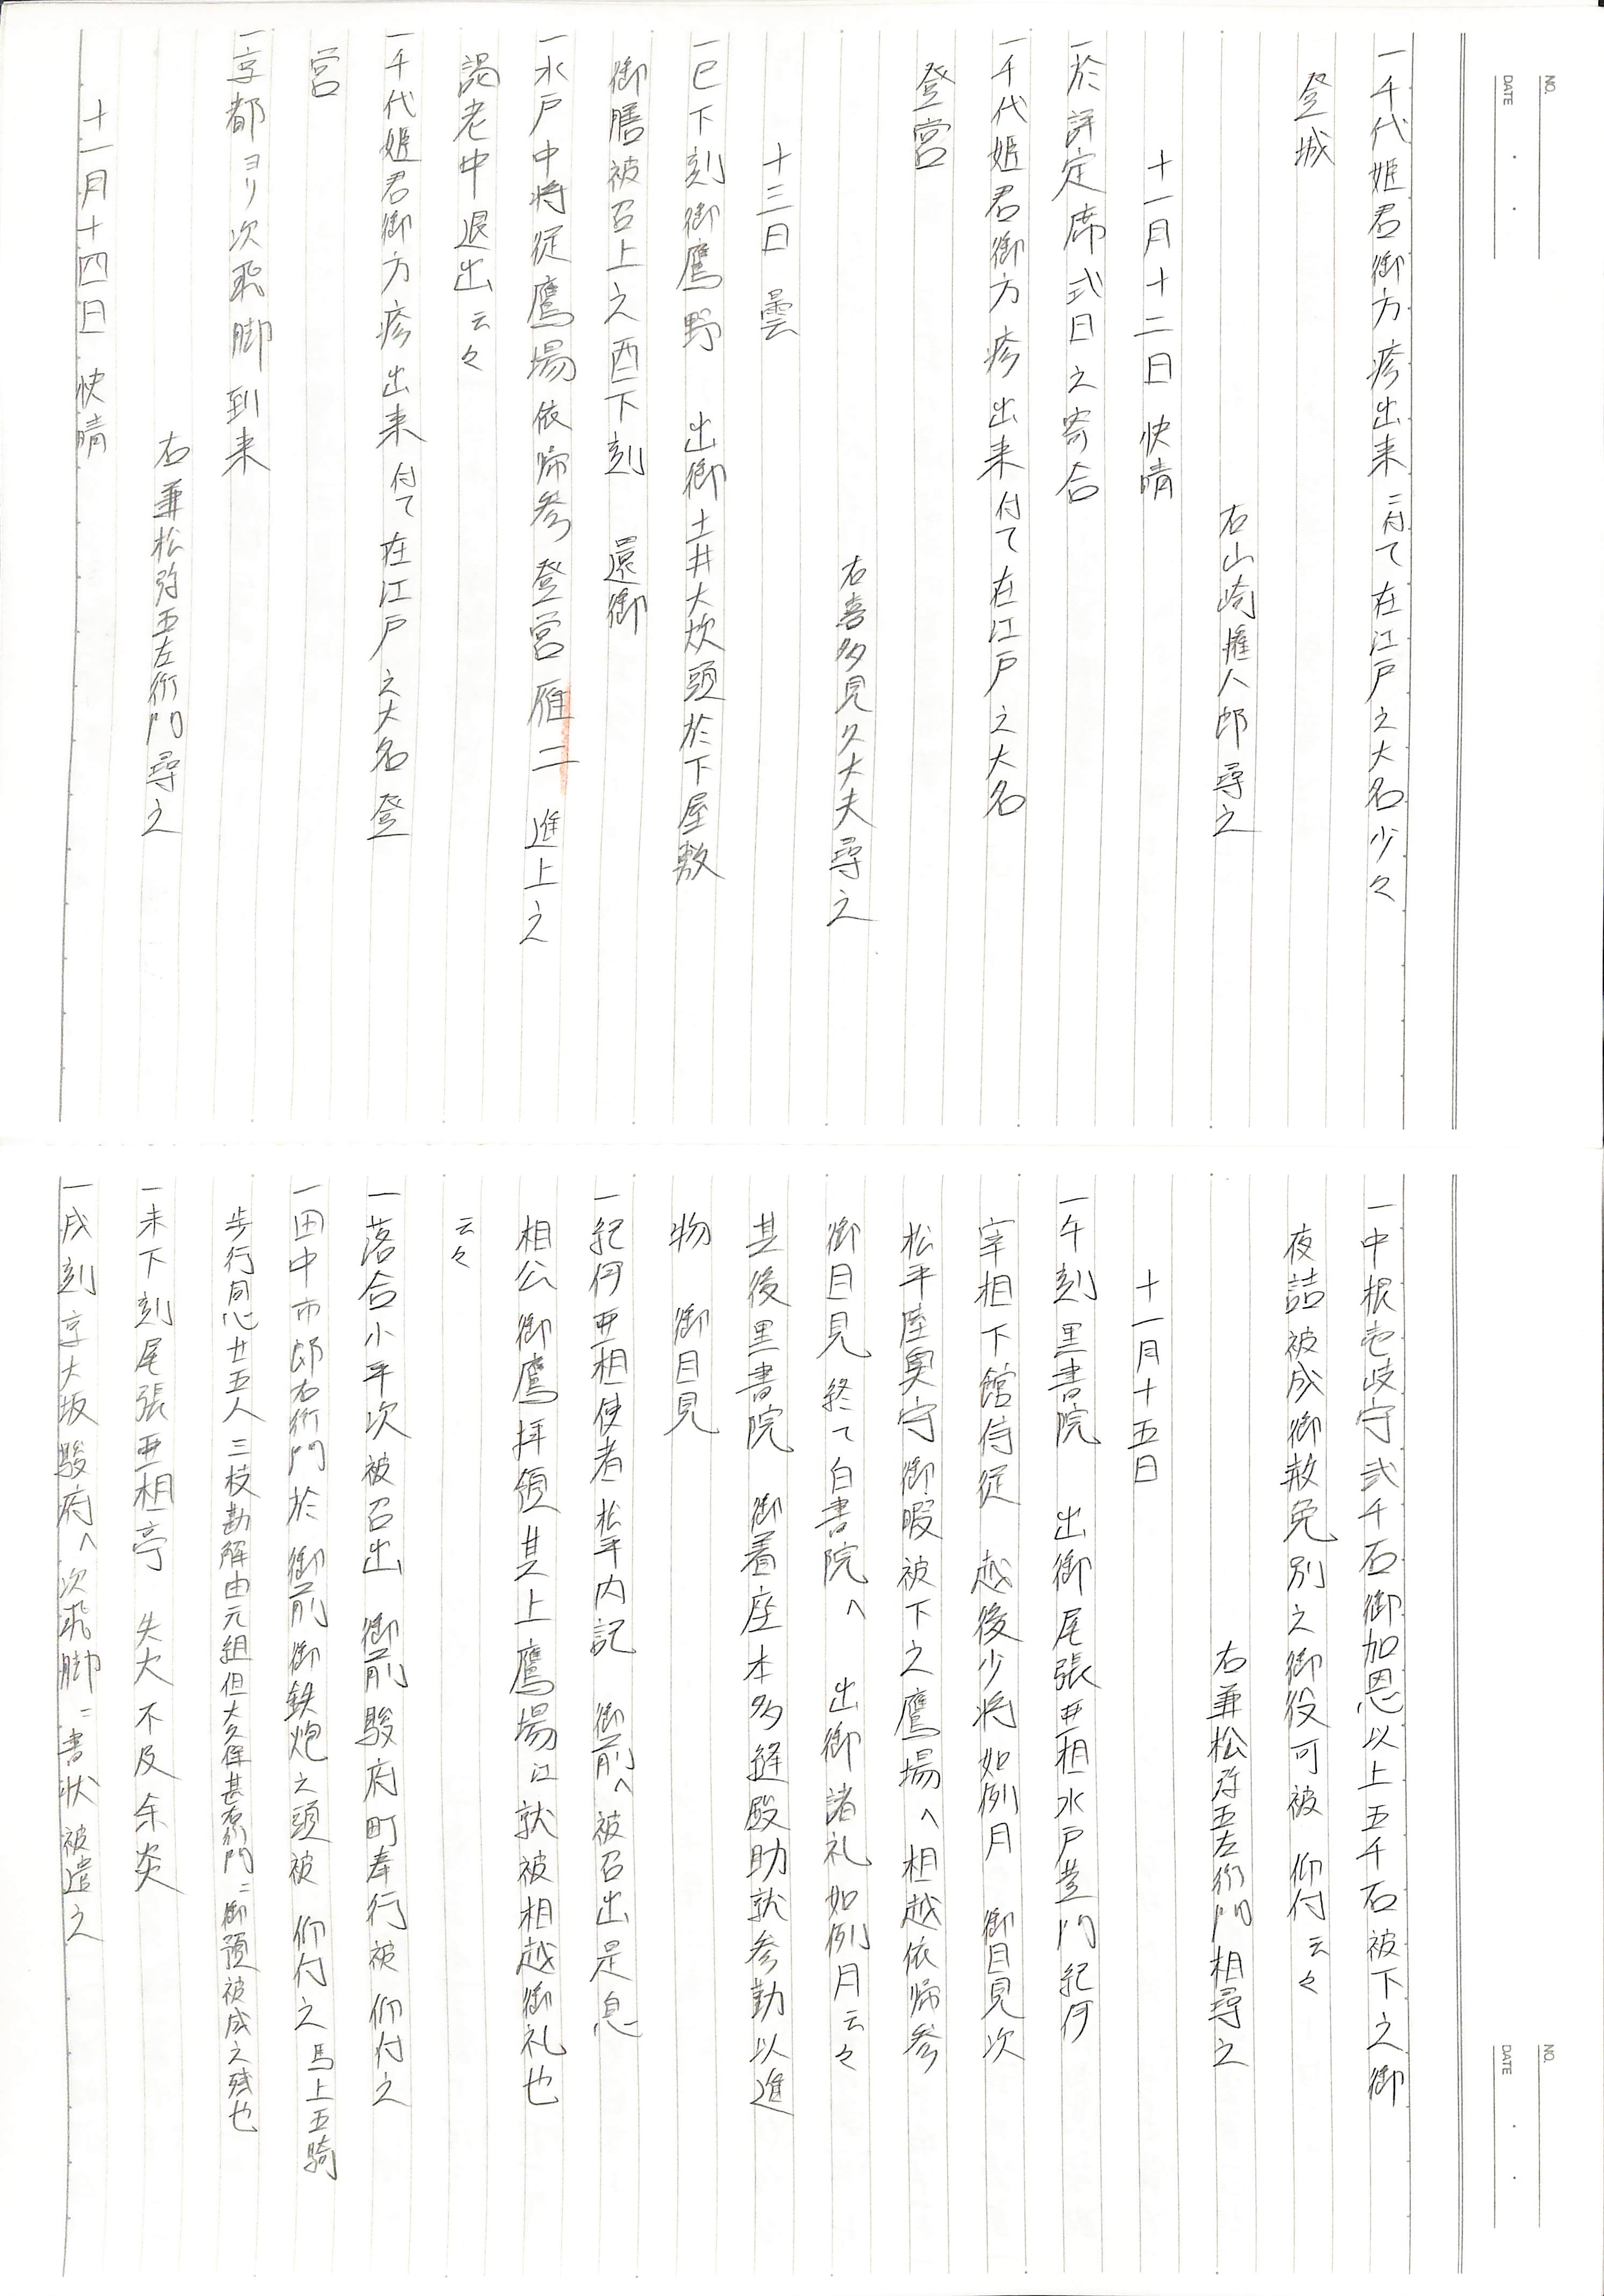 NO.
DATE
一千代姫君御方疹出来ニ付て在江戸之大名少々
登城
右山崎権八郎尋之
十一月十二日 快晴
一於評定席式日之寄合
一千代姫君御方疹出来付て在江戸之大名
登営
右喜多見久大夫尋之
十三日 曇
一巳下刻御鷹野 出御土井大炊頭於下屋敷
御膳被召上之酉下刻 還御
一水戸中将従鷹場依帰参登営雁二進上之
謁老中退出云々
一千代姫君御方疹出来付て在江戸之大名登
営
一京都ヨリ次飛脚到来
右兼松弥五左衛門尋之
十一月十四日 快晴
NO.
DATE
一中根壱岐守弐千石御加恩以上五千石被下之御
夜詰被成御赦免別之御役可被 仰付云々
右兼松弥五左衛門相尋之
十一月十五日
一午刻黒書院 出御尾張亜相水戸黄門紀伊
宰相下館侍従 越後少将如例月 御目見次
松平陸奥守御暇被下之鷹場へ相越依帰参
御目見終て白書院へ 出御諸礼如例月云々
其後黒書院 御着座本多縫殿助就参勤以進
物 御目見
一紀伊亜相使者松平内記 御前へ被召出是息
相公御鷹拝領其上鷹場江就被相越御礼也
云々
一落合小平次被召出 御前駿府町奉行被 仰付之
一田中市郎右衛門於 御前御鉄炮之頭被 仰付之 馬上五騎
歩行同心廿五人三枝勘解由元組但大久保甚右衛門ニ御預被成之残也
一未下刻尾張亜相亭 失火不及余炎
一戌刻京大坂駿府へ次飛脚ニ書状被遣之